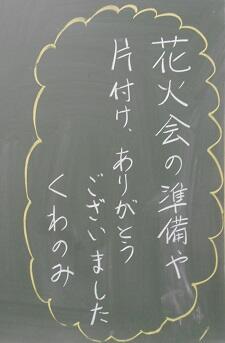 花火会の準備や
片付け、ありがとう
ございました
くわのみ